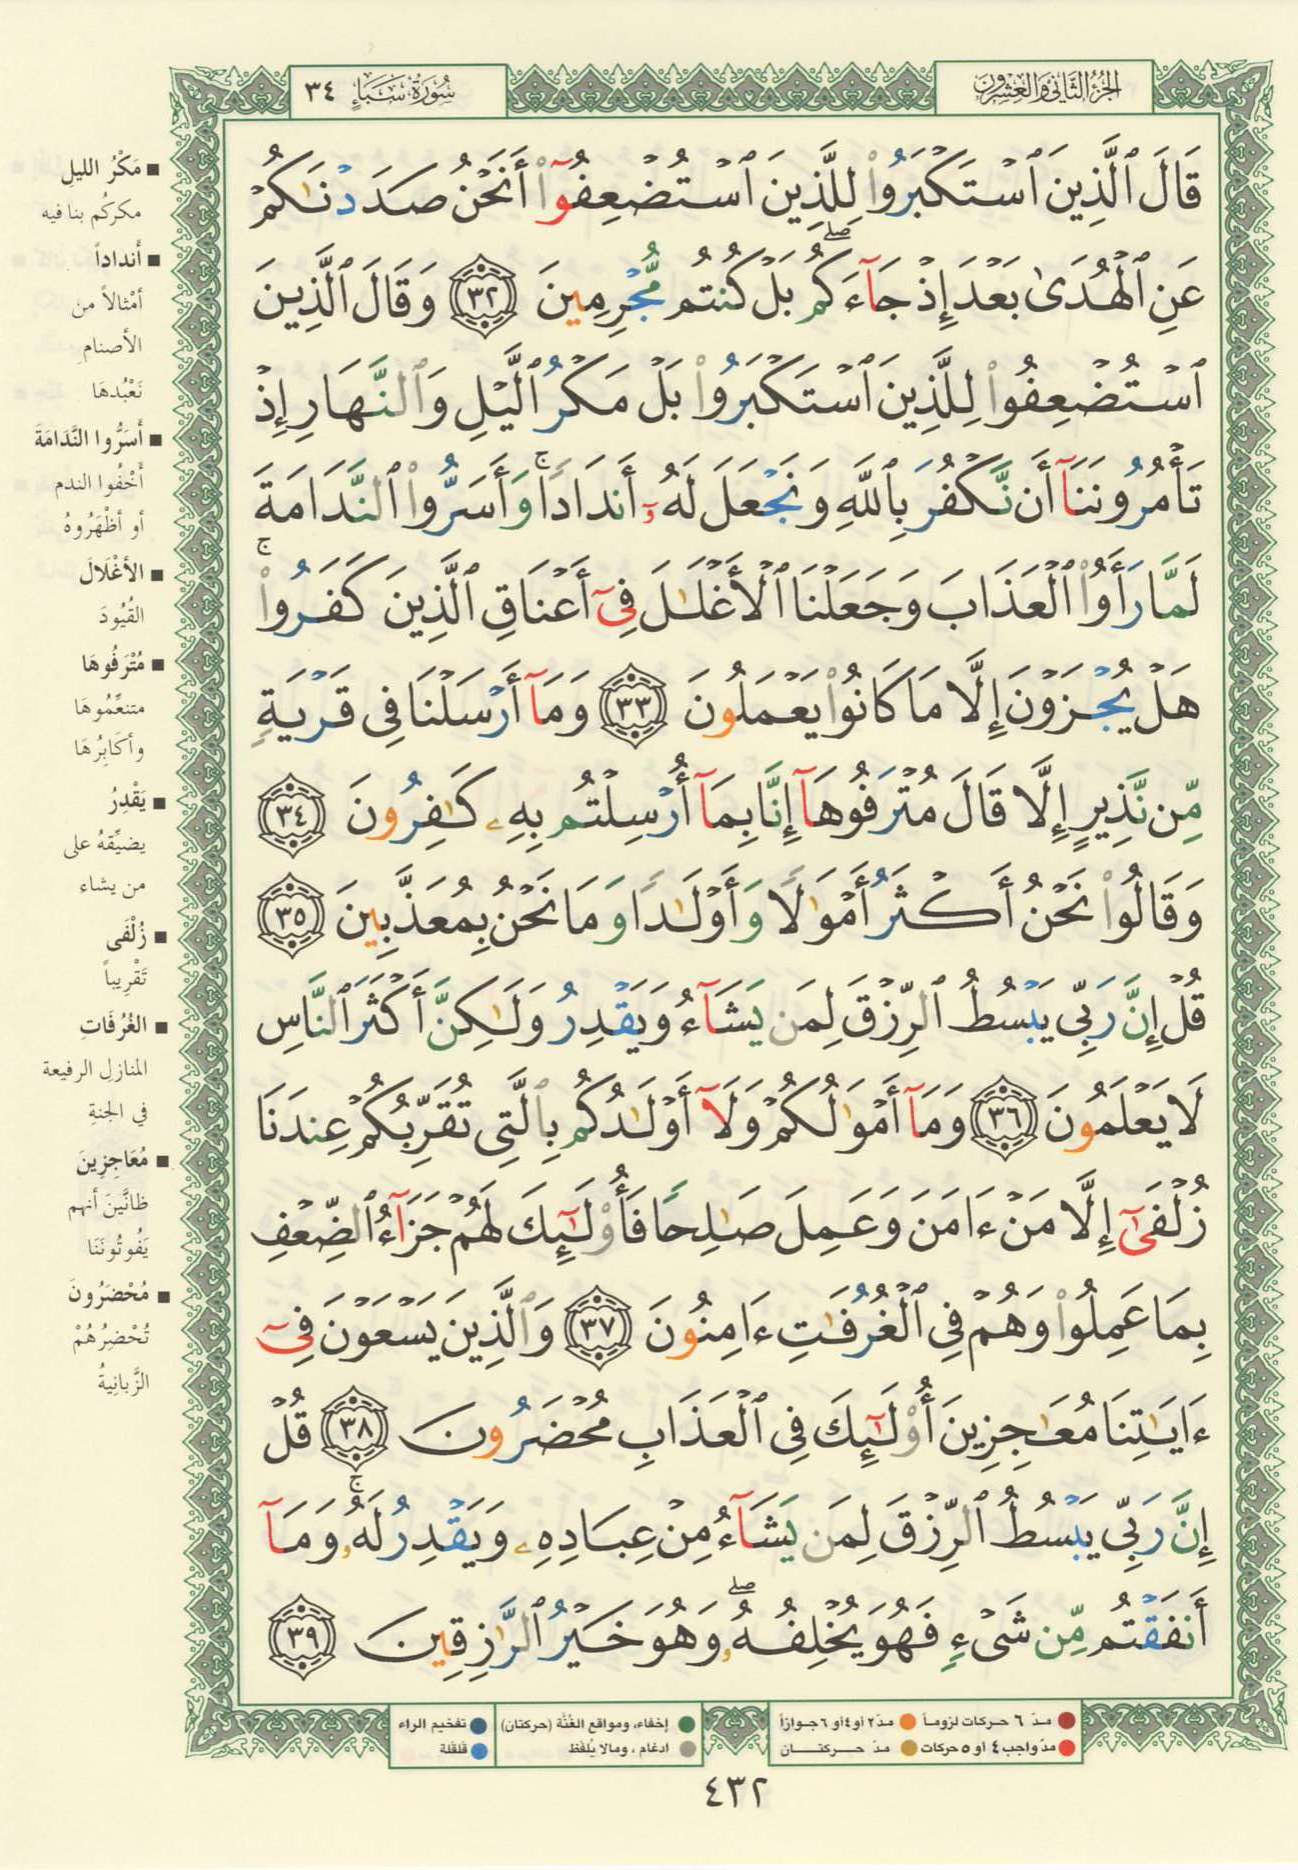 الجزء الثاني والعشرون
سورة سبإ ٣٤
قَالَ ٱلَّذِينَ ٱسْتَكْبَرُوا۟ لِلَّذِينَ ٱسْتُضْعِفُوٓا۟ أَنَحْنُ صَدَدْنَـٰكُمْ
عَنِ ٱلْهُدَىٰ بَعْدَ إِذْ جَآءَكُم ۖ بَلْ كُنتُم مُّجْرِمِينَ ٣٢ وَقَالَ ٱلَّذِينَ
ٱسْتُضْعِفُوا۟ لِلَّذِينَ ٱسْتَكْبَرُوا۟ بَلْ مَكْرُ ٱلَّيْلِ وَٱلنَّهَارِ إِذْ
تَأْمُرُونَنَآ أَن نَّكْفُرَ بِٱللَّهِ وَنَجْعَلَ لَهُۥٓ أَندَادًا ۚ وَأَسَرُّوا۟ ٱلنَّدَامَةَ
لَمَّا رَأَوُا۟ ٱلْعَذَابَ وَجَعَلْنَا ٱلْأَغْلَـٰلَ فِىٓ أَعْنَاقِ ٱلَّذِينَ كَفَرُوا۟ ۚ
هَلْ يُجْزَوْنَ إِلَّا مَا كَانُوا۟ يَعْمَلُونَ ٣٣ وَمَآ أَرْسَلْنَا فِى قَرْيَةٍ
مِّن نَّذِيرٍ إِلَّا قَالَ مُتْرَفُوهَآ إِنَّا بِمَآ أُرْسِلْتُم بِهِۦ كَـٰفِرُونَ ٣٤
وَقَالُوا۟ نَحْنُ أَكْثَرُ أَمْوَٰلًا وَأَوْلَـٰدًا وَمَا نَحْنُ بِمُعَذَّبِينَ ٣٥
قُلْ إِنَّ رَبِّى يَبْسُطُ ٱلرِّزْقَ لِمَن يَشَآءُ وَيَقْدِرُ وَلَـٰكِنَّ أَكْثَرَ ٱلنَّاسِ
لَا يَعْلَمُونَ ٣٦ وَمَآ أَمْوَٰلُكُمْ وَلَآ أَوْلَـٰدُكُم بِٱلَّتِى تُقَرِّبُكُمْ عِندَنَا
زُلْفَىٰٓ إِلَّا مَنْ ءَامَنَ وَعَمِلَ صَـٰلِحًا فَأُو۟لَـٰٓئِكَ لَهُمْ جَزَآءُ ٱلضِّعْفِ
بِمَا عَمِلُوا۟ وَهُمْ فِى ٱلْغُرُفَـٰتِ ءَامِنُونَ ٣٧ وَٱلَّذِينَ يَسْعَوْنَ فِىٓ
ءَايَـٰتِنَا مُعَـٰجِزِينَ أُو۟لَـٰٓئِكَ فِى ٱلْعَذَابِ مُحْضَرُونَ ٣٨ قُلْ
إِنَّ رَبِّى يَبْسُطُ ٱلرِّزْقَ لِمَن يَشَآءُ مِنْ عِبَادِهِۦ وَيَقْدِرُ لَهُۥ ۚ وَمَآ
أَنفَقْتُم مِّن شَىْءٍ فَهُوَ يُخْلِفُهُۥ ۖ وَهُوَ خَيْرُ ٱلرَّٰزِقِينَ ٣٩
مَكْرُ الليل
مكركُم بنا فيه
أنداداً
أمْثالاً من
الأصنام
نَعْبُدهَا
أَسَرُّوا النَّدَامَةَ
أخْفُوا الندم
أو أظْهَرُوهُ
الأغْلَالَ
القُيُودَ
مُتْرَفُوهَا
متنعِّمُوهَا
وأكَابِرُهَا
يَقْدِرُ
يضيِّقُهُ على
من يشاء
زُلْفَى
تَقْرِيباً
الغُرُفَاتِ
المنازلِ الرفيعة
في الجنةِ
مُعَاجِزِينَ
ظانَّينَ أنهم
يَفُوتُونَنَا
مُحْضَرُونَ
تُحْضِرُهُمْ
الزَّبانِيةُ
مدّ ٦ حركات لزوماً
مدّ ٢ أو ٤ أو ٦ جوازاً
إخفاء، ومواقع الغُنَّة (حركتان)
تفخيم الراء
مدّ واجب ٤ او ٥ حركات
مدّ حركتان
ادغام ، ومالا يُلفَظ
قلقلة
٤٣٢